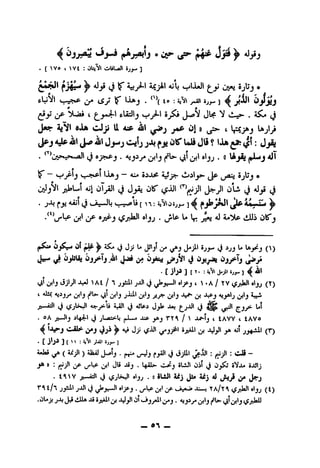 وقوله ﴿ فَتَوَلَّ عَنْهُمْ حتى حين ۞ وأبصرهم فسوف يُبصرون ﴾
[ سورة الصافات الآيتان : ١٧٤ ، ١٧٥ ] .
• وتارة يعين نوع العذاب بأنه الهزيمة الحربية كما في قوله ﴿ سَيُهْزَمُ الجَمْعُ
وَيُوَلُّونَ الدُّبُرَ ﴾ [ سورة القمر الآية : ٤٥ ](١) . وهذا كما ترى من عجيب الأنباء
في مكة . حيث لا مجال لأصل فكرة الحرب والتقاء الجموع ، فضلاً عن توقع
فرارها وهزيمتها ، حتى « إن عمر رضي الله عنه لما نزلت هذه الآية جعل
يقول : أيُّ جمع هذا ؟ قال فلما كان يوم بدر رأيت رسول الله صلى الله عليه وعلى
آله وسلم يقولها » . رواه ابن أبي حاتم وابن مردويه . وعجزه في الصحيحين(٢) .
• وتارة ينص على حوادث جزئية محددة منه – وهذا أعجب وأغرب – كما
في قوله في شأن الرجل الزنيم(٣) الذي كان يقول في القرآن إنه أساطير الأولين
﴿ سَنَسِمُهُ عَلَى الخُرْطُومِ ﴾ [ سورة ن الآية : ١٦ ] فأصيب بالسيف في أنفه يوم بدر .
وكان ذلك علامة له يعيَّر بها ما عاش . رواه الطبري وغيره عن ابن عباس(٤) .
(١) ونحوها ما ورد في سورة المزمل وهي من أوائل ما نزل في مكة ﴿ عَلِمَ أن سيكون منكم
مَرضى وآخرون يضربون في الأرض يبتغون من فضل الله وآخرون يقاتلون في سبيل
الله ﴾ [ سورة المزمل الآية : ٢٠ ] . [ دراز ] .
(٢) رواه الطبري ٢٧ / ١٠٨ ، وعزاه السيوطي في الدر المنثور ٧ / ٦٨١ لعبد الرزاق وابن أبي
شيبة وابن راهويه وعبد بن حميد وابن جرير وابن المنذر وابن أبي حاتم وابن مردويه بمثله ،
أما خروج النبي ﷺ في الدرع بعد طول دعائه في القبة فأخرجه البخاري في التفسير
٤٨٧٥ ، ٤٨٧٧ ، وأحمد ١ / ٣٢٩ وهو عند مسلم باختصار في الجهاد والسير ٥٨ .
(٣) المشهور أنه هو الوليد بن المغيرة المخزومي الذي نزل فيه ﴿ ذرني ومن خلقت وحيداً ﴾
[ سورة المدثر الآية : ١١ ] [ دراز ] .
– قلت : الزنيم : الدَّعِيّ الملزق في القوم وليس منهم . وأصل لفظة ( الزنمة ) هي قطعة
زائدة مدلاة تكون في أذن الشاة وتحت حلقها . وقد قال ابن عباس عن الزنيم : « هو
رجل من قريش له زنمة مثل زنمة الشاة » . رواه البخاري في التفسير ٤٩١٧ .
(٤) رواه الطبري ٢٨/٢٩ بسند ضعيف عن ابن عباس . وعزاه السيوطي في الدر المنثور ٣٩٤/٦
للطبري وابن أبي حاتم وابن مردويه . ومن المعروف أن الوليد بن المغيرة قد هلك قبل بدر بزمان .
– ٥٦ –